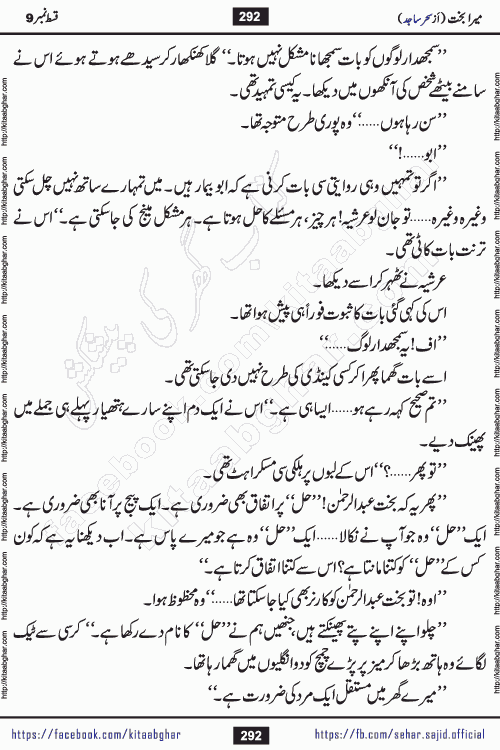 میرا بخت (از سحر ساجد)
292
قسط نمبر 9
’’سمجھدار لوگوں کو بات سمجھانا مشکل نہیں ہوتا۔‘‘ گلا کھنکھار کر سیدھے ہوتے ہوئے اس نے
سامنے بیٹھے شخص کی آنکھوں میں دیکھا۔ یہ کیسی تمہید تھی۔
’’سن رہا ہوں......‘‘ وہ پوری طرح متوجہ تھا۔
’’ابو......!‘‘
’’اگر تو تمہیں وہی روایتی سی بات کرنی ہے کہ ابو بیمار ہیں۔ میں تمہارے ساتھ نہیں چل سکتی
وغیرہ وغیرہ...... تو جان لو عرشیہ! ہر چیز، ہر مسئلے کا حل ہوتا ہے۔ ہر مشکل مینج کی جا سکتی ہے۔‘‘ اس نے
ترنت بات کاٹی تھی۔
عرشیہ نے ٹھہر کر اسے دیکھا۔
اس کی کہی گئی بات کا ثبوت فوراً ہی پیش ہوا تھا۔
’’اف! یہ سمجھدار لوگ......‘‘
اسے بات گھما پھرا کر کسی کینڈی کی طرح نہیں دی جا سکتی تھی۔
’’تم صحیح کہہ رہے ہو...... ایسا ہی ہے۔‘‘ اس نے ایک دم اپنے سارے ہتھیار پہلے ہی جملے میں
پھینک دیے۔
’’تو پھر......؟‘‘ اس کے لبوں پر ہلکی سی مسکراہٹ تھی۔
’’پھر یہ کہ بخت عبدالرحمٰن! ’’حل‘‘ پر اتفاق بھی ضروری ہے۔ ایک پیج پر آنا بھی ضروری ہے۔
ایک ’’حل‘‘ وہ جو آپ نے نکالا...... ایک ’’حل‘‘ وہ ہے جو میرے پاس ہے۔ اب دیکھنا یہ ہے کہ کون
کس کے ’’حل‘‘ کو کتنا مانتا ہے؟ اس سے کتنا اتفاق کرتا ہے۔‘‘
’’اوہ! تو بخت عبدالرحمٰن کو کارنر بھی کیا جا سکتا تھا......‘‘ وہ محظوظ ہوا۔
’’چلو اپنے اپنے پتے پھینکتے ہیں، جنھیں ہم نے ’’حل‘‘ کا نام دے رکھا ہے۔‘‘ کرسی سے ٹیک
لگائے وہ ہاتھ بڑھا کر میز پر پڑے چمچ کو دو انگلیوں میں گھما رہا تھا۔
’’میرے گھر میں مستقل ایک مرد کی ضرورت ہے۔‘‘
https://facebook.com/kitaabghar
292
https://fb.com/sehar.sajid.official
http://kitaabghar.com
کتاب گھر کی پیشکش
facebook.com/kitaabghar
kitaabghar.com